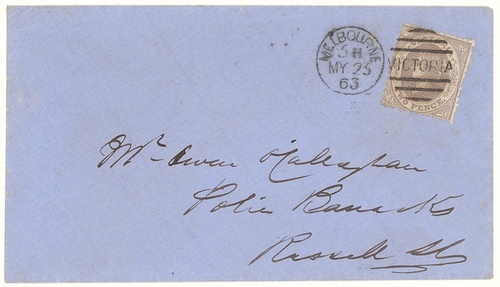 MELBOURNE
5H
MY 25
63
VICTORIA
TWO PENCE
Mr. Owen O'Callaghan
Police Barracks
Russell St